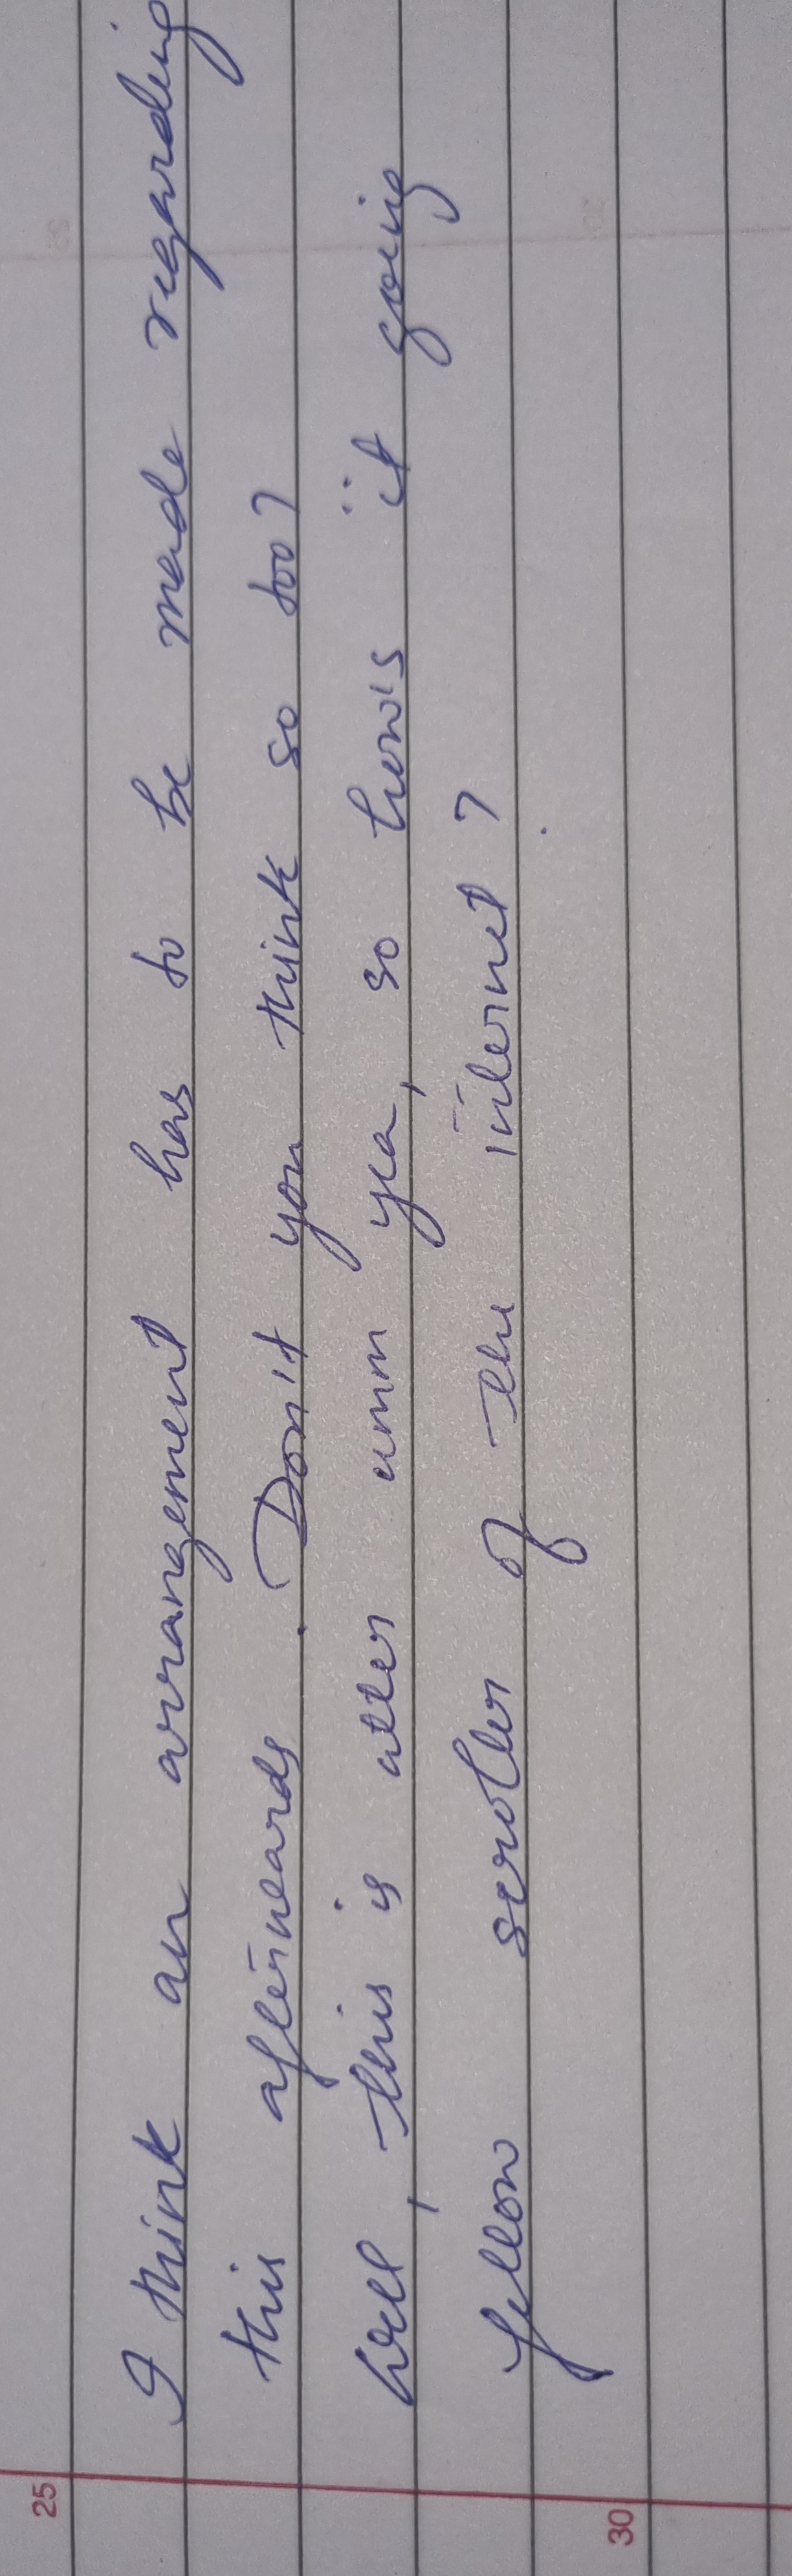 25
I think an arrangement has to be made regarding
this afterwards. Don't you think so too?
Well, this is utter umm yea, so how's it going
fellow scroller of the internet?
30